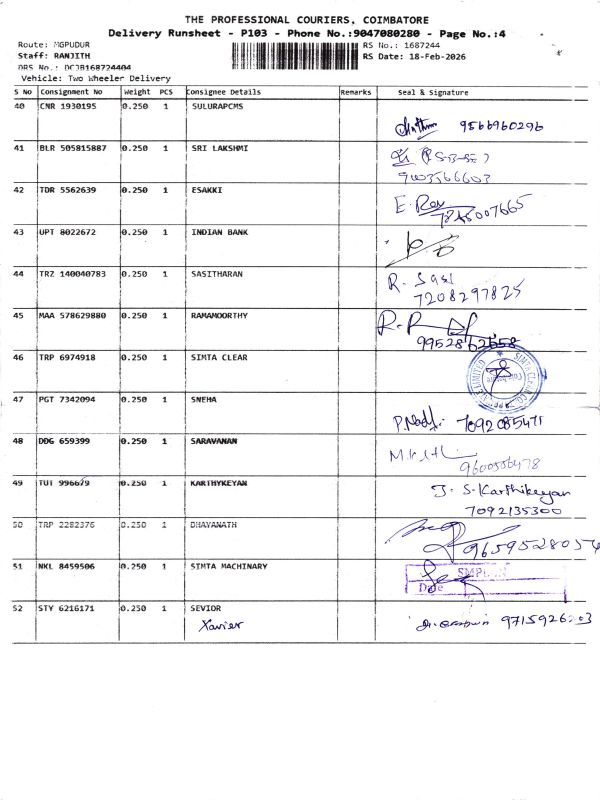 THE PROFESSIONAL COURIERS, COIMBATORE
Delivery Runsheet - P103 - Phone No.:9047080280 - Page No.:4
Route: MGPUDUR RS No.: 1687244
Staff: RANJITH RS Date: 18-Feb-2026
DRS No.: DCJB168724404
Vehicle: Two Wheeler Delivery
S No Consignment No Weight PCS Consignee Details Remarks Seal & Signature
40 CNR 1930195 0.250 1 SULURAPCMS
9566960296
41 BLR 505815887 0.250 1 SRI LAKSHMI
9003566603
42 TDR 5562639 0.250 1 ESAKKI
E. Roy
7845007665
43 UPT 8022672 0.250 1 INDIAN BANK
44 TRZ 140040783 0.250 1 SASITHARAN
R. Sasi
7208297825
45 MAA 578629880 0.250 1 RAMAMOORTHY
R.R
9952862658
46 TRP 6974918 0.250 1 SIMTA CLEAR
47 PGT 7342094 0.250 1 SNEHA
7092085471
48 DDG 659399 0.250 1 SARAVANAN
9600556478
49 TUT 996679 0.250 1 KARTHYKEYAN
J. S. Karthikeyan
7092135300
50 TRP 2282376 0.250 1 DHAYANATH
9659528054
51 NKL 8459506 0.250 1 SIMTA MACHINARY
Date
52 STY 6216171 0.250 1 SEVIOR
Xavier 9715926203